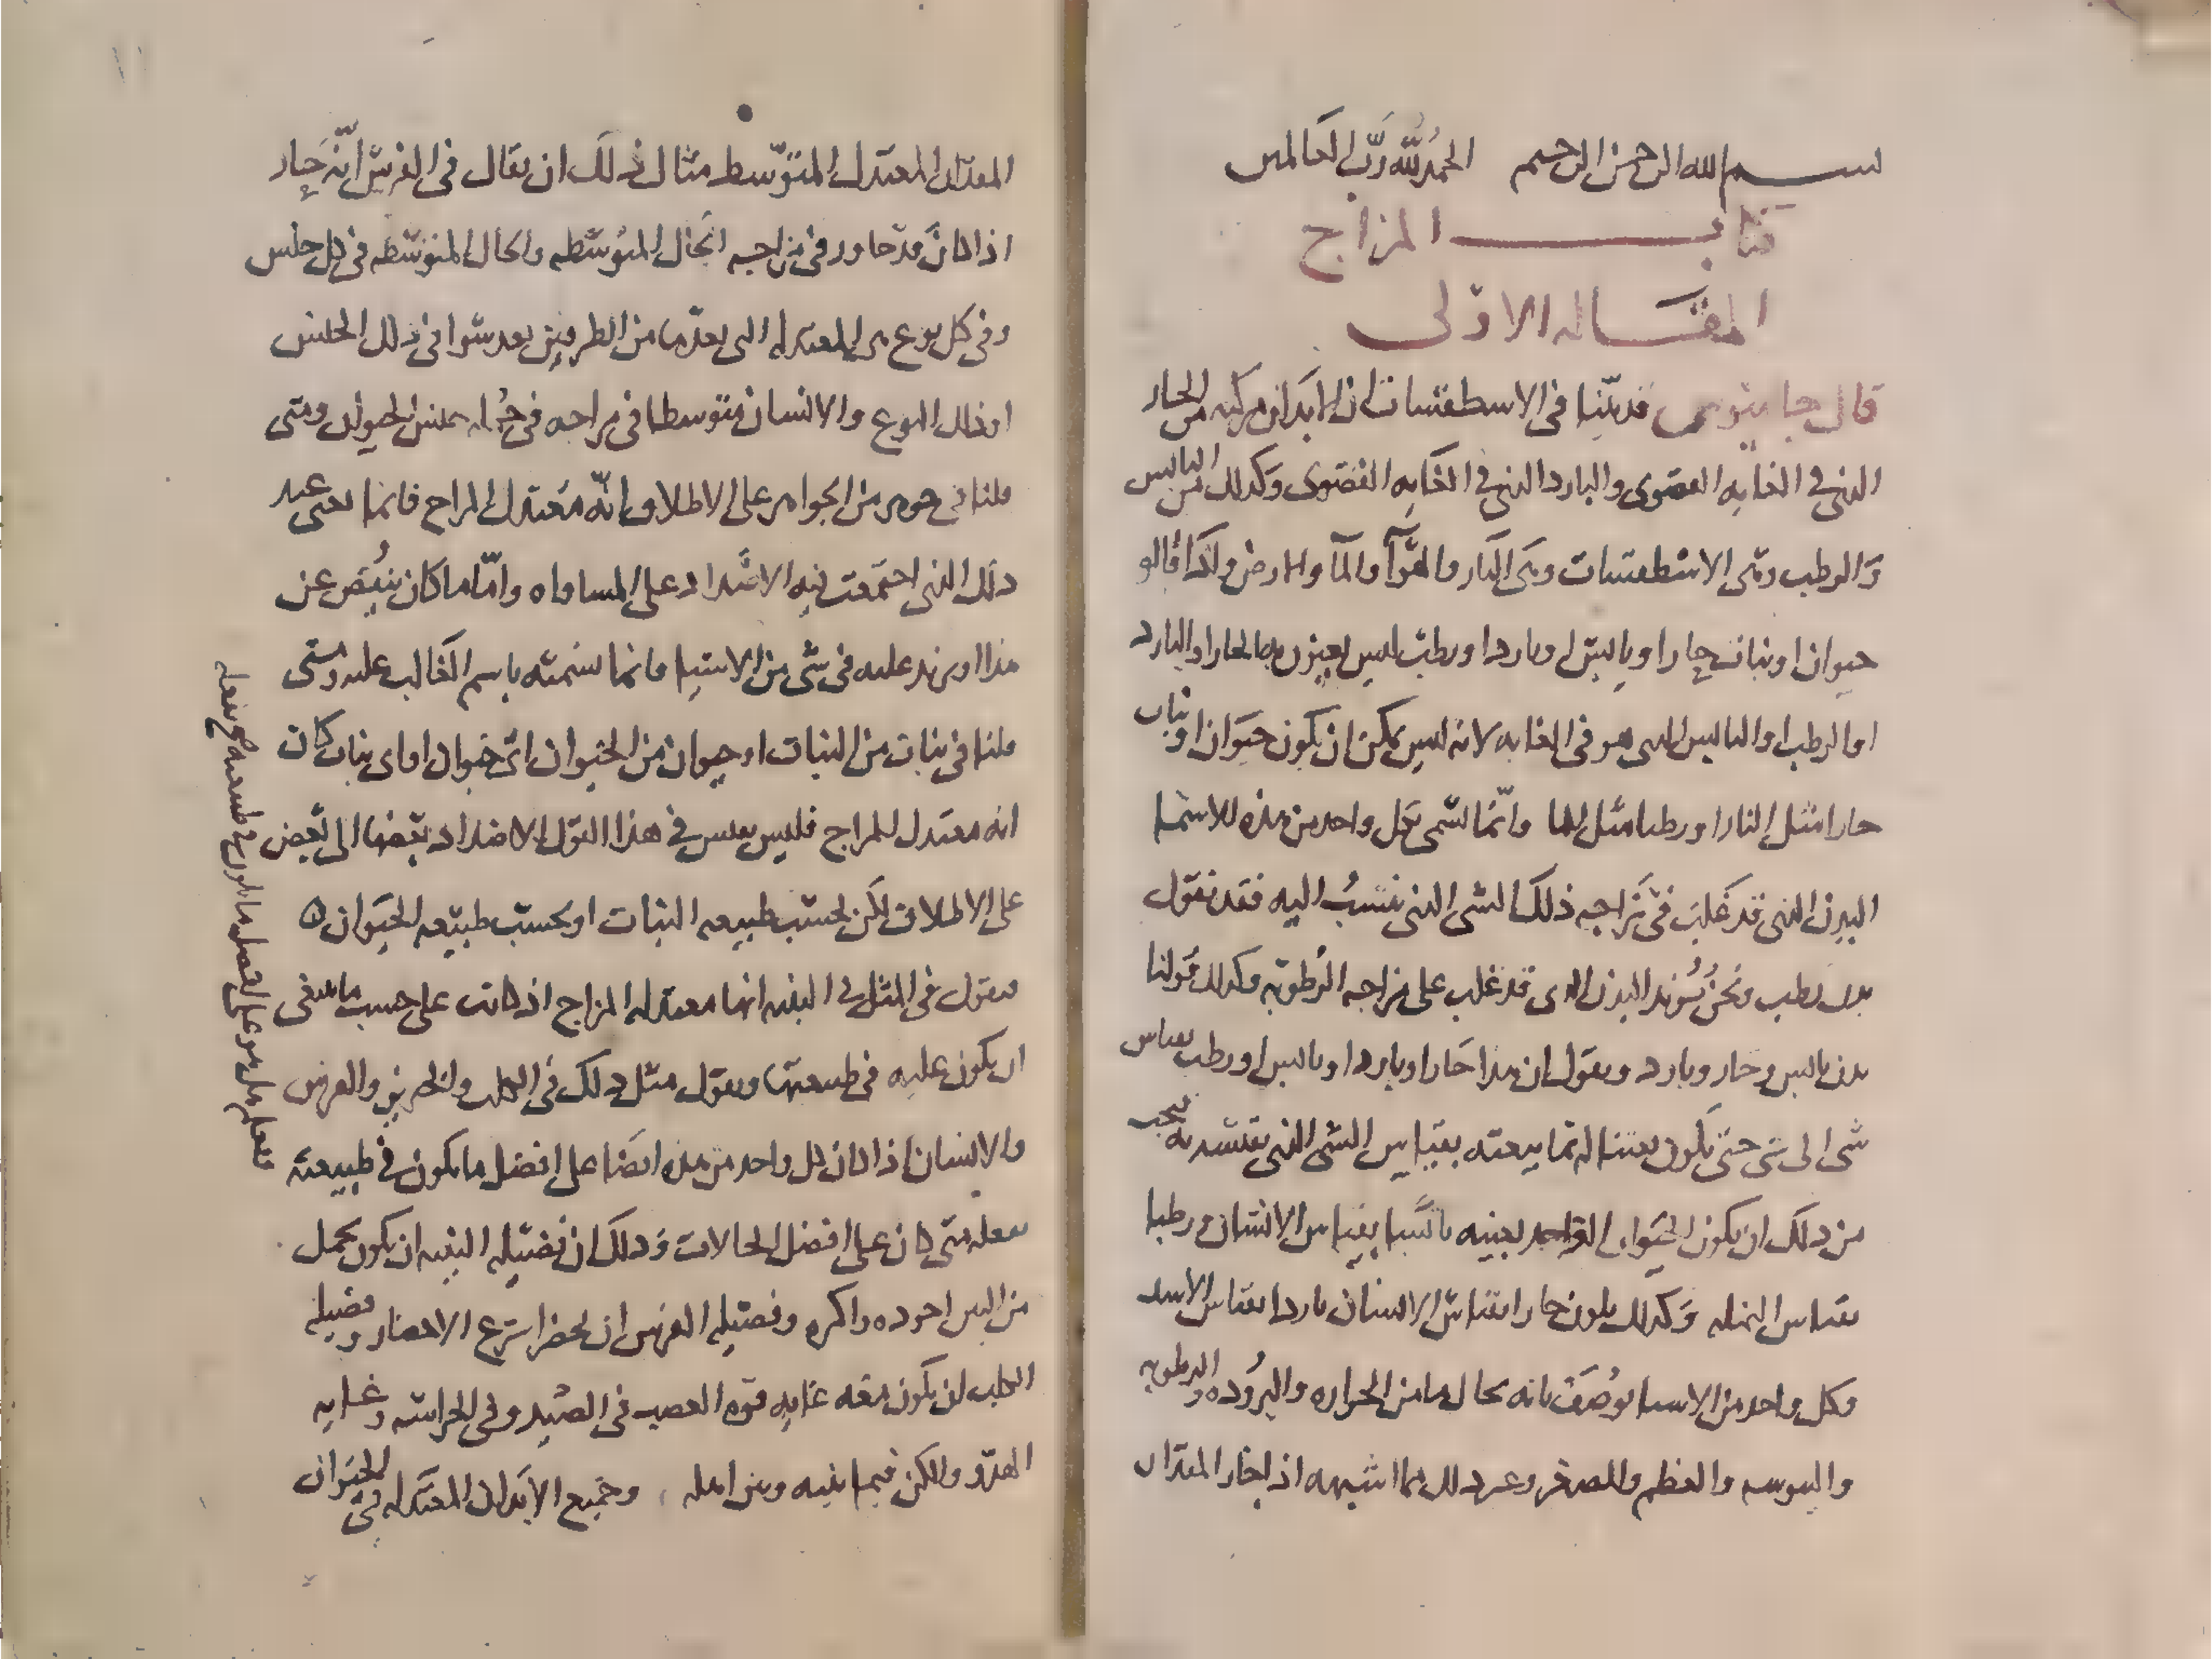 بسم الله الرحمن الرحيم الحمد لله رب العالمين
كتاب المزاج
المقاله الاولى
قال جالينوس قد بيّنا فى الاسطقسات ان الابدان مركبه من الحار
الذى فى الغايه القصوى والبارد الذى فى الغايه القصوى وكذلك من اليابس
والرطب وهى الاسطقسات وهى النار والهوآ والمآ والارض ولذا قالو
حيوان او نبات حارا ويابس او باردا ورطب ليس يعنون به الحار او البارد
او الرطب او اليابس الذى هو فى الغايه لانه ليس يمكن ان يكون حيوان او نبات
حارا مثل النار او رطبا مثل الما وانّما نسمى بكل واحد من هذه الاسما
البدن الذى قد غلب فى مزاجه ذلك الشى الذى ننسبُ اليه فقد نقول
بدن رطب ونحن نُريد البدن الذى قد غلب على مزاجه الرُطوبه وكذلك قولنا
بدن يابس وحار وبارد ونقول ان هذا حارا او باردا او يابس او رطب بقياس
شى الى شى حتى يكون بعتنا له انما نبعته بقياس الشى الذى نقيسه به فيجب
من ذلك ان يكون الحيوان الواحد بعينه يابسا بقياس الانسان ورطبا
بقياس النمله وكذلك يكون حارا بقياس الانسان باردا بقياس الاسد
وكل واحد من الاسيا يوصَف بانه بحال ما من الحراره والبرُوده والرطوبه
واليبوسه والعظم والصغر وغير ذلك مما اشبهه اذا جاز المقدار
المقدار المعتدل المتوّسط مثال ذلك ان يقال فى الفرس انّه حار
اذا كان قد جاوز فى مزاجه الحال المتوسّطه والحال المتوسّطه فى كل جنس
وفى كل نوع هى المعتدله التى بعدها من الطرفين بعد سوا فى ذلك الجنس
او ذلك النوع والانسان متوسطا فى مزاجه فى جُمله جنس الحيوان ومتى
قلنا فى جوهر من الجواهر على الاطلاق انّه معتدل المزاج فانما نعنى عند
ذلك الذى اجتمعت فيه الاضداد على المساواه وامّا ما كان ينُقص عن
هذا او يزيد عليه فى شى من الاشيا فانما نسميّه باسم الغالب عليه ومتى
قلنا فى نبات من النبات او حيوان من الحيوان اىّ حيوان او اى نبات كان
انه معتدل المزاج فليس نقيس فى هذا القول الاضداد بعضها الى بعض
على الاطلاق لكن بحسب طبيعه النبات او بحسب طبيعه الحيوان
فنقول فى المثل فى التينه انها معتدله المزاج اذا كانت على حسب ما ينبغى
ان يكون عليه فى طبيعتها ونقول مثل ذلك فى الكلب والخنزير والفرس
والانسان اذا كان كل واحد من هذه ايضا على افضل ما يكون فى طبيعته
بفعله متى كان على افضل الحالات وذلك ان فضيله التينه ان يكون تحمل
من التين اجوده واكثره وفضيله الفرس ان يحضر اسرع الاحضار وفضيله
الكلب ان يكون معه غايه قوه الغضب فى الصّيد وفى الحراسه وغايه
الهدّو والسكن فيما بينه وبين اهله وجميع الابدان المعتدله فى الحيوان